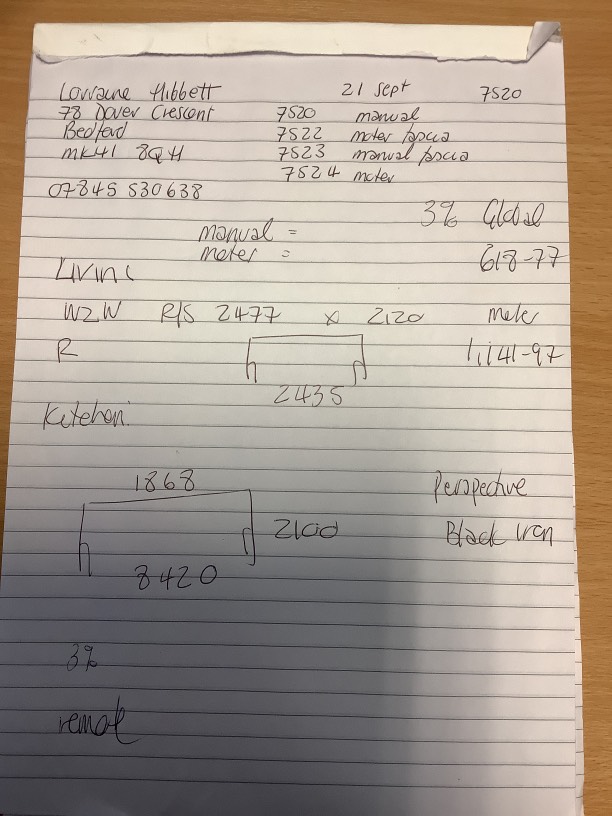 Lorraine Hibbett 21 Sept 7520
78 Dover Crescent 7520 manual
Bedford 7522 moter fascia
MK41 8QH 7523 manual fascia
7524 moter
07845 530638
3% Global
manual =
moter = 618-77
Living
W2W R/S 2477 x 2120
R 1,141-97
2435
Kitchen:
1868 Perspective
2100 Black iron
8420
3%